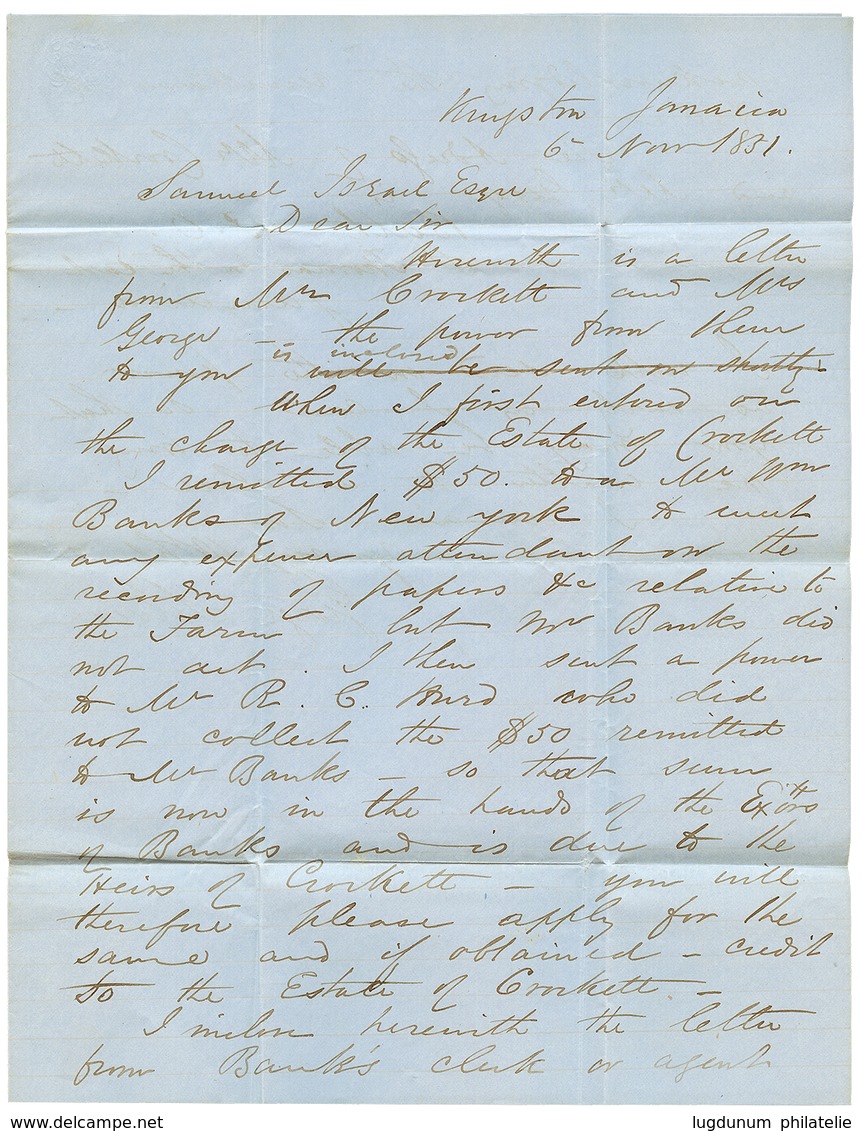 Kingston Jamaica
6 Novr 1851.
Samuel Israel Esqre
Dear Sir
Herewith is a letter
from Mrs Crockett and Mrs
George – the power from them
is inclosed
to you will be sent on shortly.
When I first entered on
the charge of the Estate of Crockett
I remitted $50. to a Mr Wm
Banks of New york to meet
any expenses attendant on the
recording of papers &c relative to
the Farm but Mr Banks did
not act. I then sent a power
to Mr R. C. Hurd who did
not collect the $50 remitted
to Mr Banks – so that sum
is now in the hands of the Exors
of Banks and is due to the
Heirs of Crockett – you will
therefore please apply for the
same and if obtained – credit
to the Estate of Crockett –
I inclose herewith the letter
from Bank's clerk or agent
www.delcampe.net
lugdunum philatelie